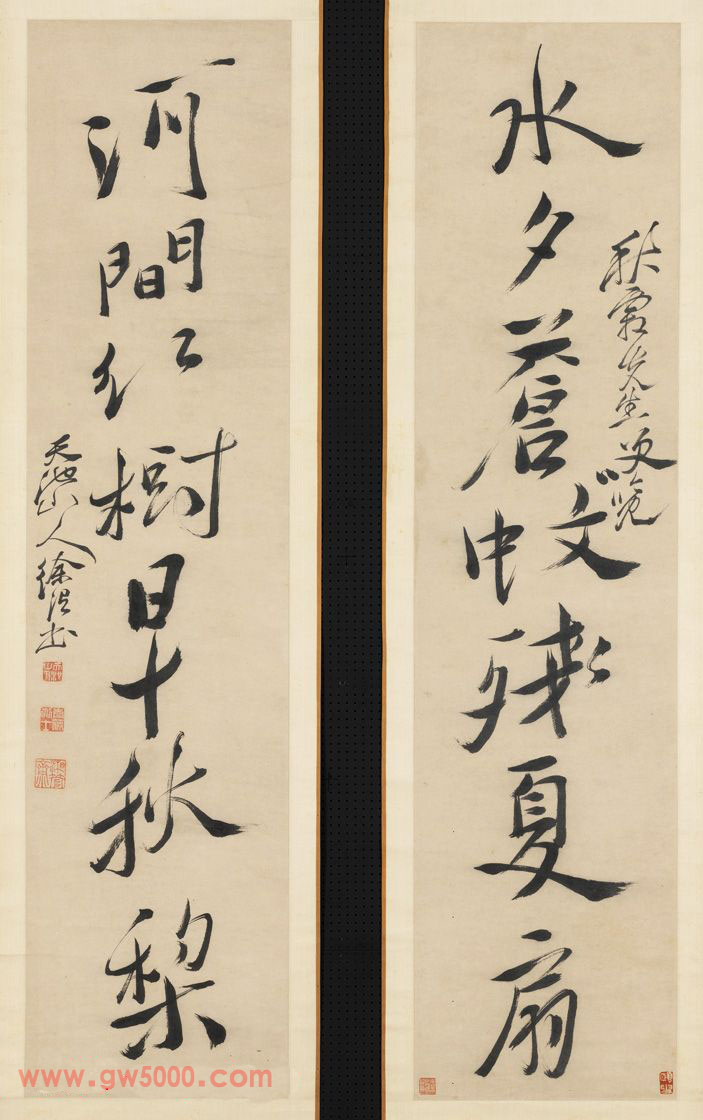 水夕蒼蚊殘夏扇
秋先生覽
河間紅樹早秋梨
天池山人徐渭書
www.gw5000.com